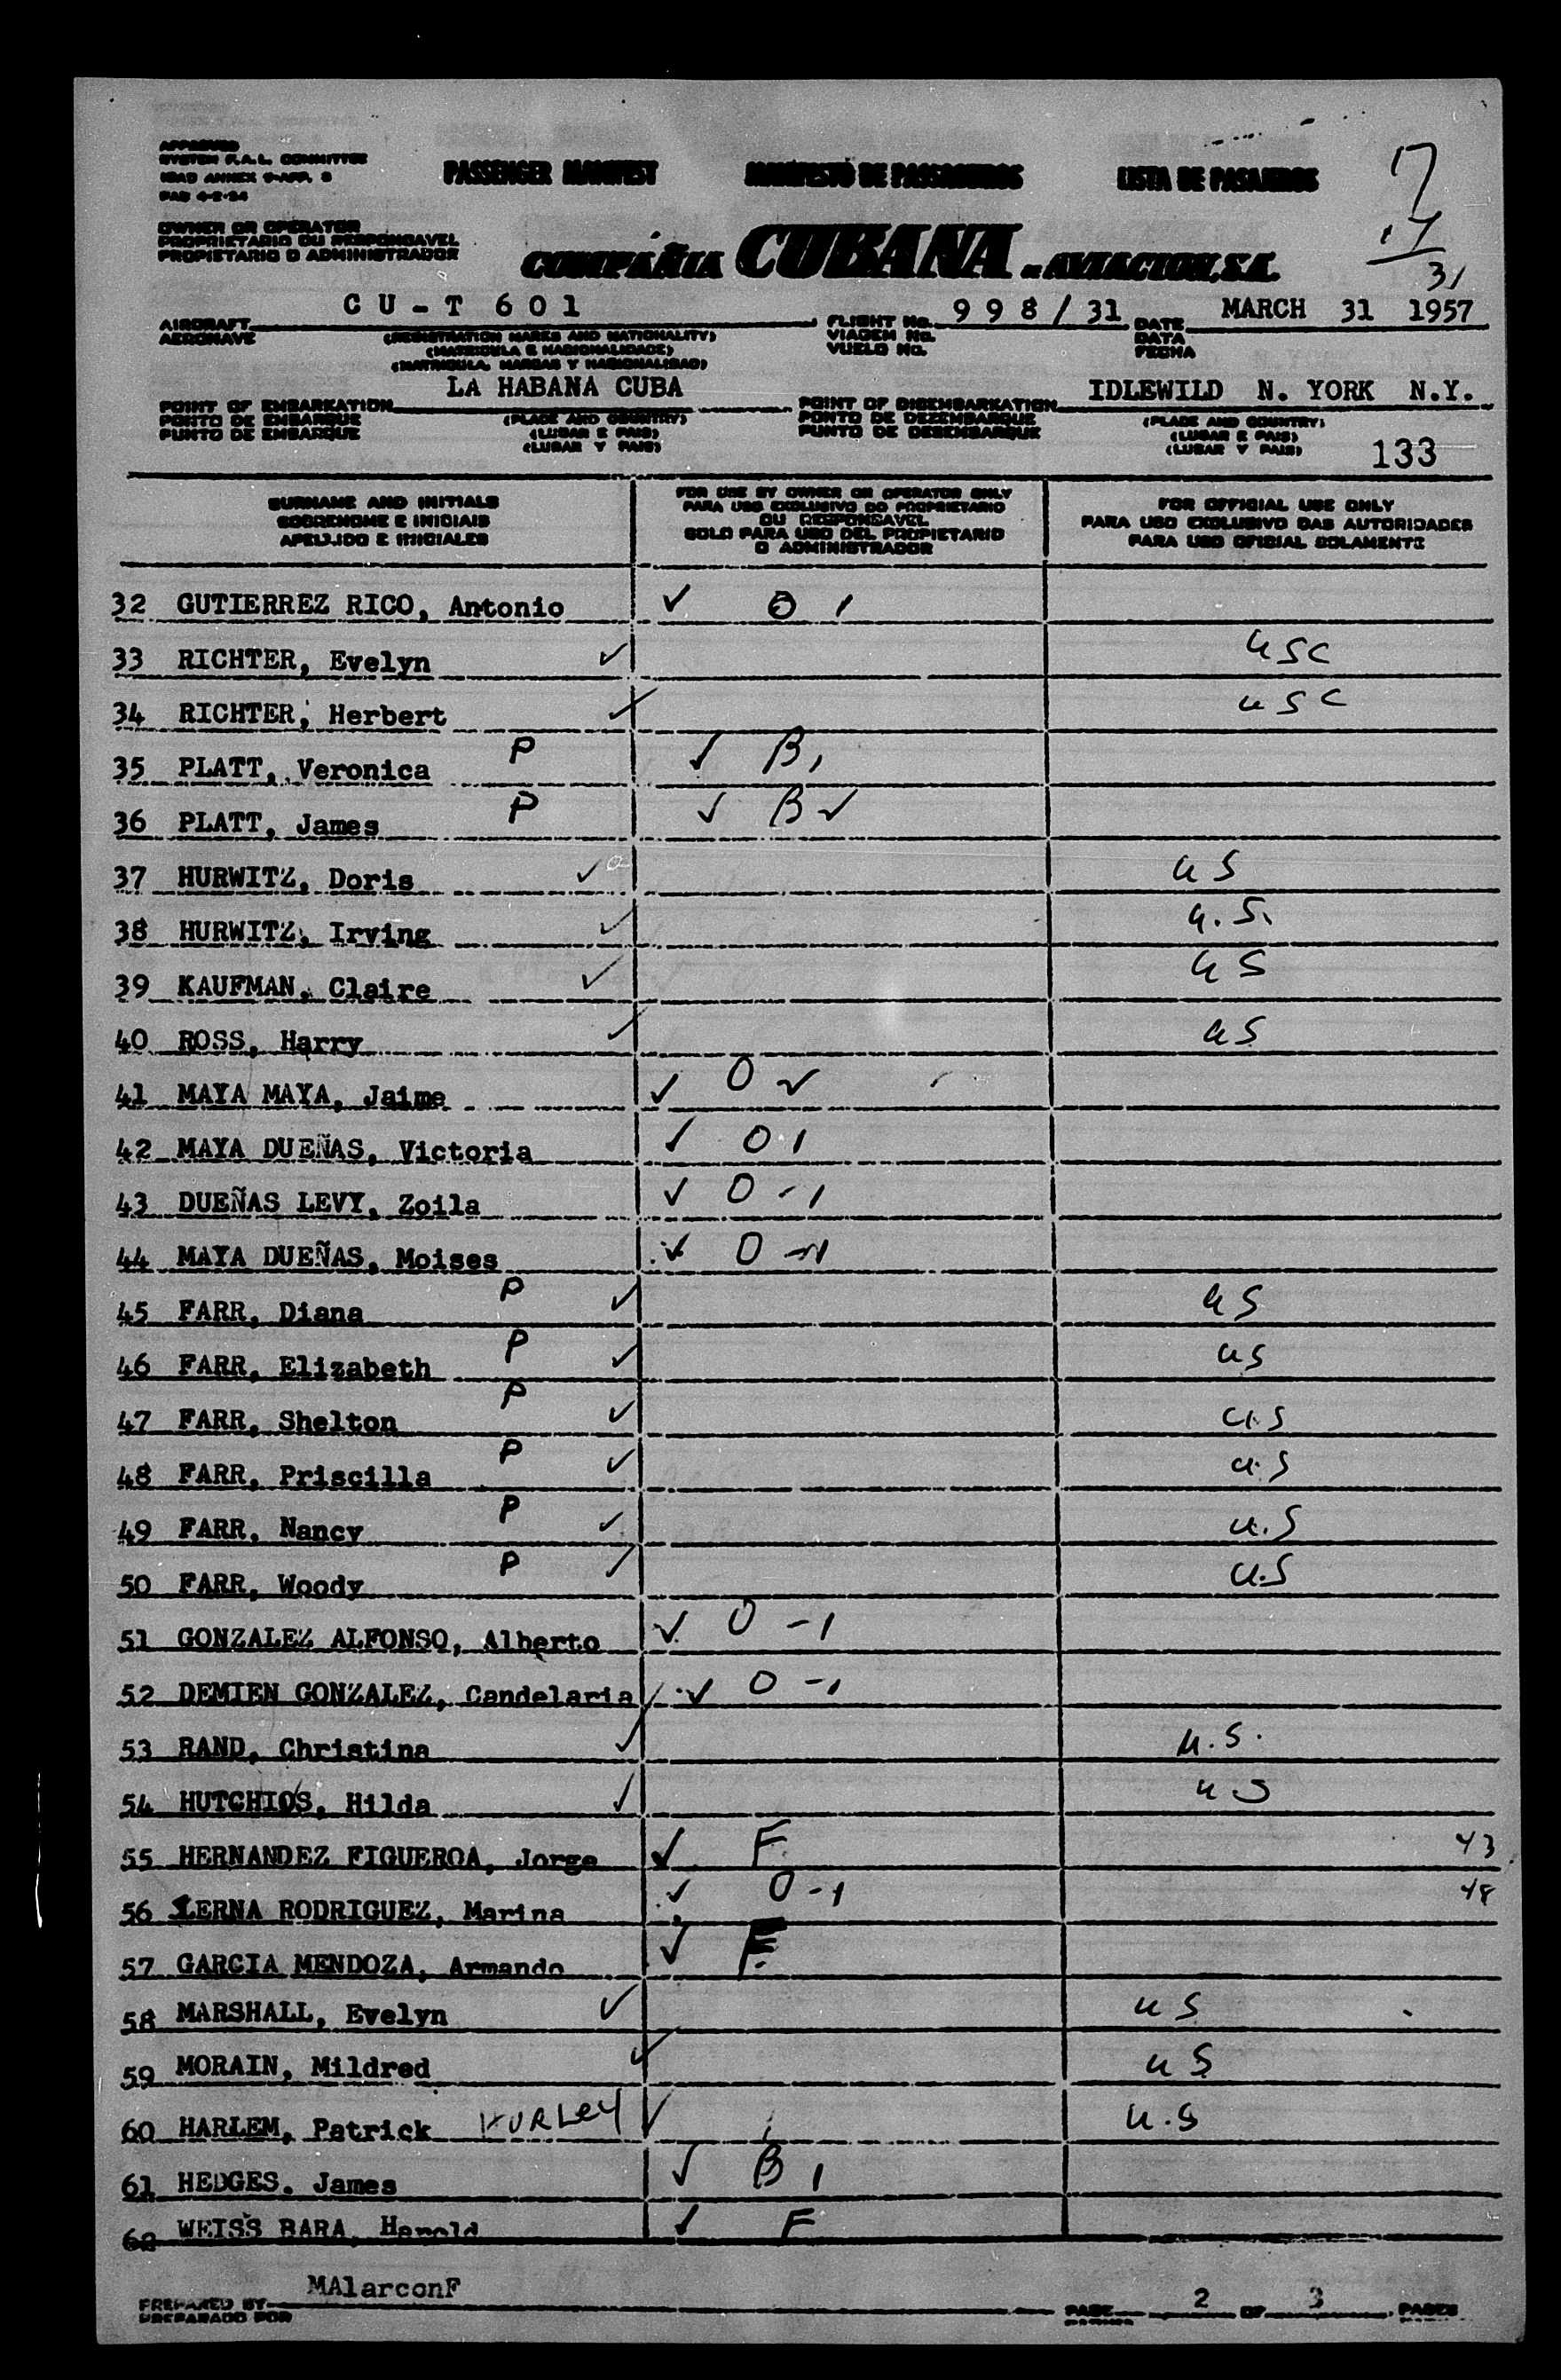 APPROVED
SYSTEM F.A.L. COMMITTEE
ICAO ANNEX 9-APP. 3
PAB 4-2-54
PASSENGER MANIFEST MANIFESTO DE PASSAGEIROS LISTA DE PASAJEROS
17
14
31
OWNER OR OPERATOR
PROPRIETARIO OU RESPONSAVEL
PROPIETARIO O ADMINISTRADOR
COMPAÑIA CUBANA DE AVIACION, S.A.
AIRCRAFT CU-T 601 FLIGHT No. 998/31 DATE MARCH 31 1957
AERONAVE (REGISTRATION MARKS AND NATIONALITY) VIAGEM No. DATA
(MATRICULA E NACIONALIDADE) VUELO No. FECHA
(MATRICULA, MARCAS Y NACIONALIDAD)
POINT OF EMBARKATION LA HABANA CUBA POINT OF DISEMBARKATION IDLEWILD N. YORK N.Y.
PONTO DE EMBARQUE (PLACE AND COUNTRY) PONTO DE DEZEMBARQUE (PLACE AND COUNTRY)
PUNTO DE EMBARQUE (LUGAR E PAIS) PUNTO DE DESEMBARQUE (LUGAR E PAIS)
(LUGAR Y PAIS) (LUGAR Y PAIS) 133
SURNAME AND INITIALS
SOBRENOME E INICIAIS
APELLIDO E INICIALES
FOR USE BY OWNER OR OPERATOR ONLY
PARA USO EXCLUSIVO DO PROPRIETARIO
OU RESPONSAVEL
SOLO PARA USO DEL PROPIETARIO
O ADMINISTRADOR
FOR OFFICIAL USE ONLY
PARA USO EXCLUSIVO DAS AUTORIDADES
PARA USO OFICIAL SOLAMENTE
32 GUTIERREZ RICO, Antonio ✓ O 1
33 RICHTER, Evelyn ✓ USC
34 RICHTER, Herbert ✓ USC
35 PLATT, Veronica P ✓ B 1
36 PLATT, James P ✓ B ✓
37 HURWITZ, Doris ✓ US
38 HURWITZ, Irving ✓ U.S.
39 KAUFMAN, Claire ✓ US
40 ROSS, Harry ✓ US
41 MAYA MAYA, Jaime ✓ O ✓
42 MAYA DUEÑAS, Victoria ✓ O 1
43 DUEÑAS LEVY, Zoila ✓ O - 1
44 MAYA DUEÑAS, Moises ✓ O - 1
45 FARR, Diana P ✓ US
46 FARR, Elizabeth P ✓ US
47 FARR, Shelton P ✓ U.S
48 FARR, Priscilla P ✓ U.S
49 FARR, Nancy P ✓ U.S
50 FARR, Woody P ✓ U.S
51 GONZALEZ ALFONSO, Alberto ✓ O - 1
52 DEMIEN GONZALEZ, Candelaria ✓ O - 1
53 RAND, Christina ✓ U.S.
54 HUTCHIOS, Hilda ✓ US
55 HERNANDEZ FIGUEROA, Jorge ✓ F 43
56 LERNA RODRIGUEZ, Marina ✓ O - 1 48
57 GARCIA MENDOZA, Armando ✓ F
58 MARSHALL, Evelyn ✓ US
59 MORAIN, Mildred ✓ US
60 HARLEM, Patrick HURLEY ✓ U.S
61 HEDGES, James ✓ B 1
62 WEISS BARA, Harold ✓ F
PREPARED BY MAlarconF PAGE 2 OF 3 PAGES
PREPARADO POR